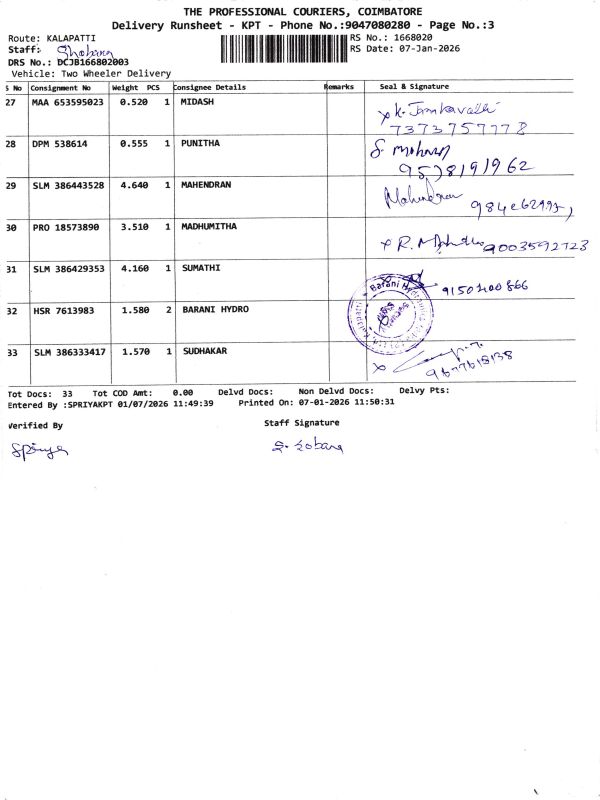 THE PROFESSIONAL COURIERS, COIMBATORE
Delivery Runsheet - KPT - Phone No.:9047080280 - Page No.:3
Route: KALAPATTI
RS No.: 1668020
Staff: Shobana
RS Date: 07-Jan-2026
DRS No.: DCJB166802003
Vehicle: Two Wheeler Delivery
S No Consignment No Weight PCS Consignee Details Remarks Seal & Signature
27 MAA 653595023 0.520 1 MIDASH
7373757778
28 DPM 538614 0.555 1 PUNITHA S. Mohan
9578191962
29 SLM 386443528 4.640 1 MAHENDRAN Mahendran
30 PRO 18573890 3.510 1 MADHUMITHA x R. 9003592723
31 SLM 386429353 4.160 1 SUMATHI
32 HSR 7613983 1.580 2 BARANI HYDRO
Barani
33 SLM 386333417 1.570 1 SUDHAKAR x
9677618138
Tot Docs: 33 Tot COD Amt: 0.00 Delvd Docs: Non Delvd Docs: Delvy Pts:
Entered By :SPRIYAKPT 01/07/2026 11:49:39 Printed On: 07-01-2026 11:50:31
Verified By
Staff Signature